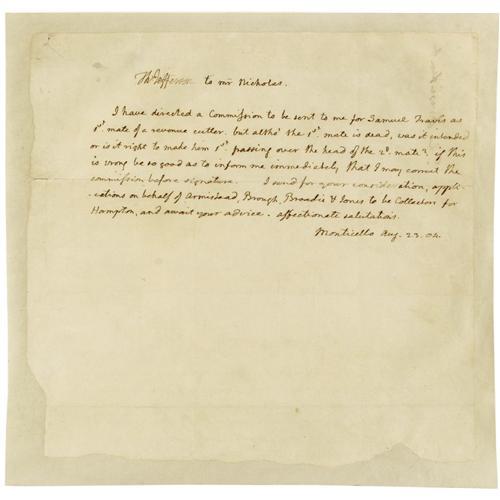 Th Jefferson to mr Nicholas.
I have directed a Commission to be sent to me for Samuel Travis as
1st. mate of a revenue cutter. but altho' the 1st. mate is dead, was it intended
or is it right to make him 1st. passing over the head of the 2d. mate? if this
is wrong be so good as to inform me immediately that I may correct the
commission before signature. I send for your consideration, appli-
cations on behalf of Armistead, Brough, Broadie & Jones to be Collectors for
Hampton, and await your advice. affectionate salutations.
Monticello Aug. 23. 04.